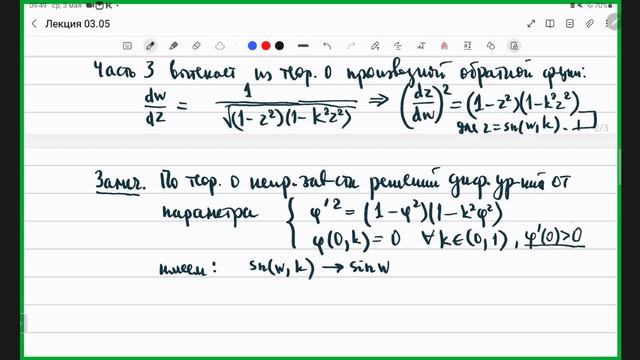 09:49 ср, 3 мая
70%
Лекция 03.05
Часть 3 вытекает из теор. о производной обратной функции:
dw/dz = 1/√((1-z²)(1-k²z²)) ⇒ (dz/dw)² = (1-z²)(1-k²z²)
для z = sn(w,k).
2/3
Замеч. По теор. о непр. зав-сти решений диф. ур-ний от
параметра { φ'² = (1-φ²)(1-k²φ²)
φ(0,k) = 0 ∀k∈(0,1), φ'(0)>0
имеем: sn(w,k) → sin w